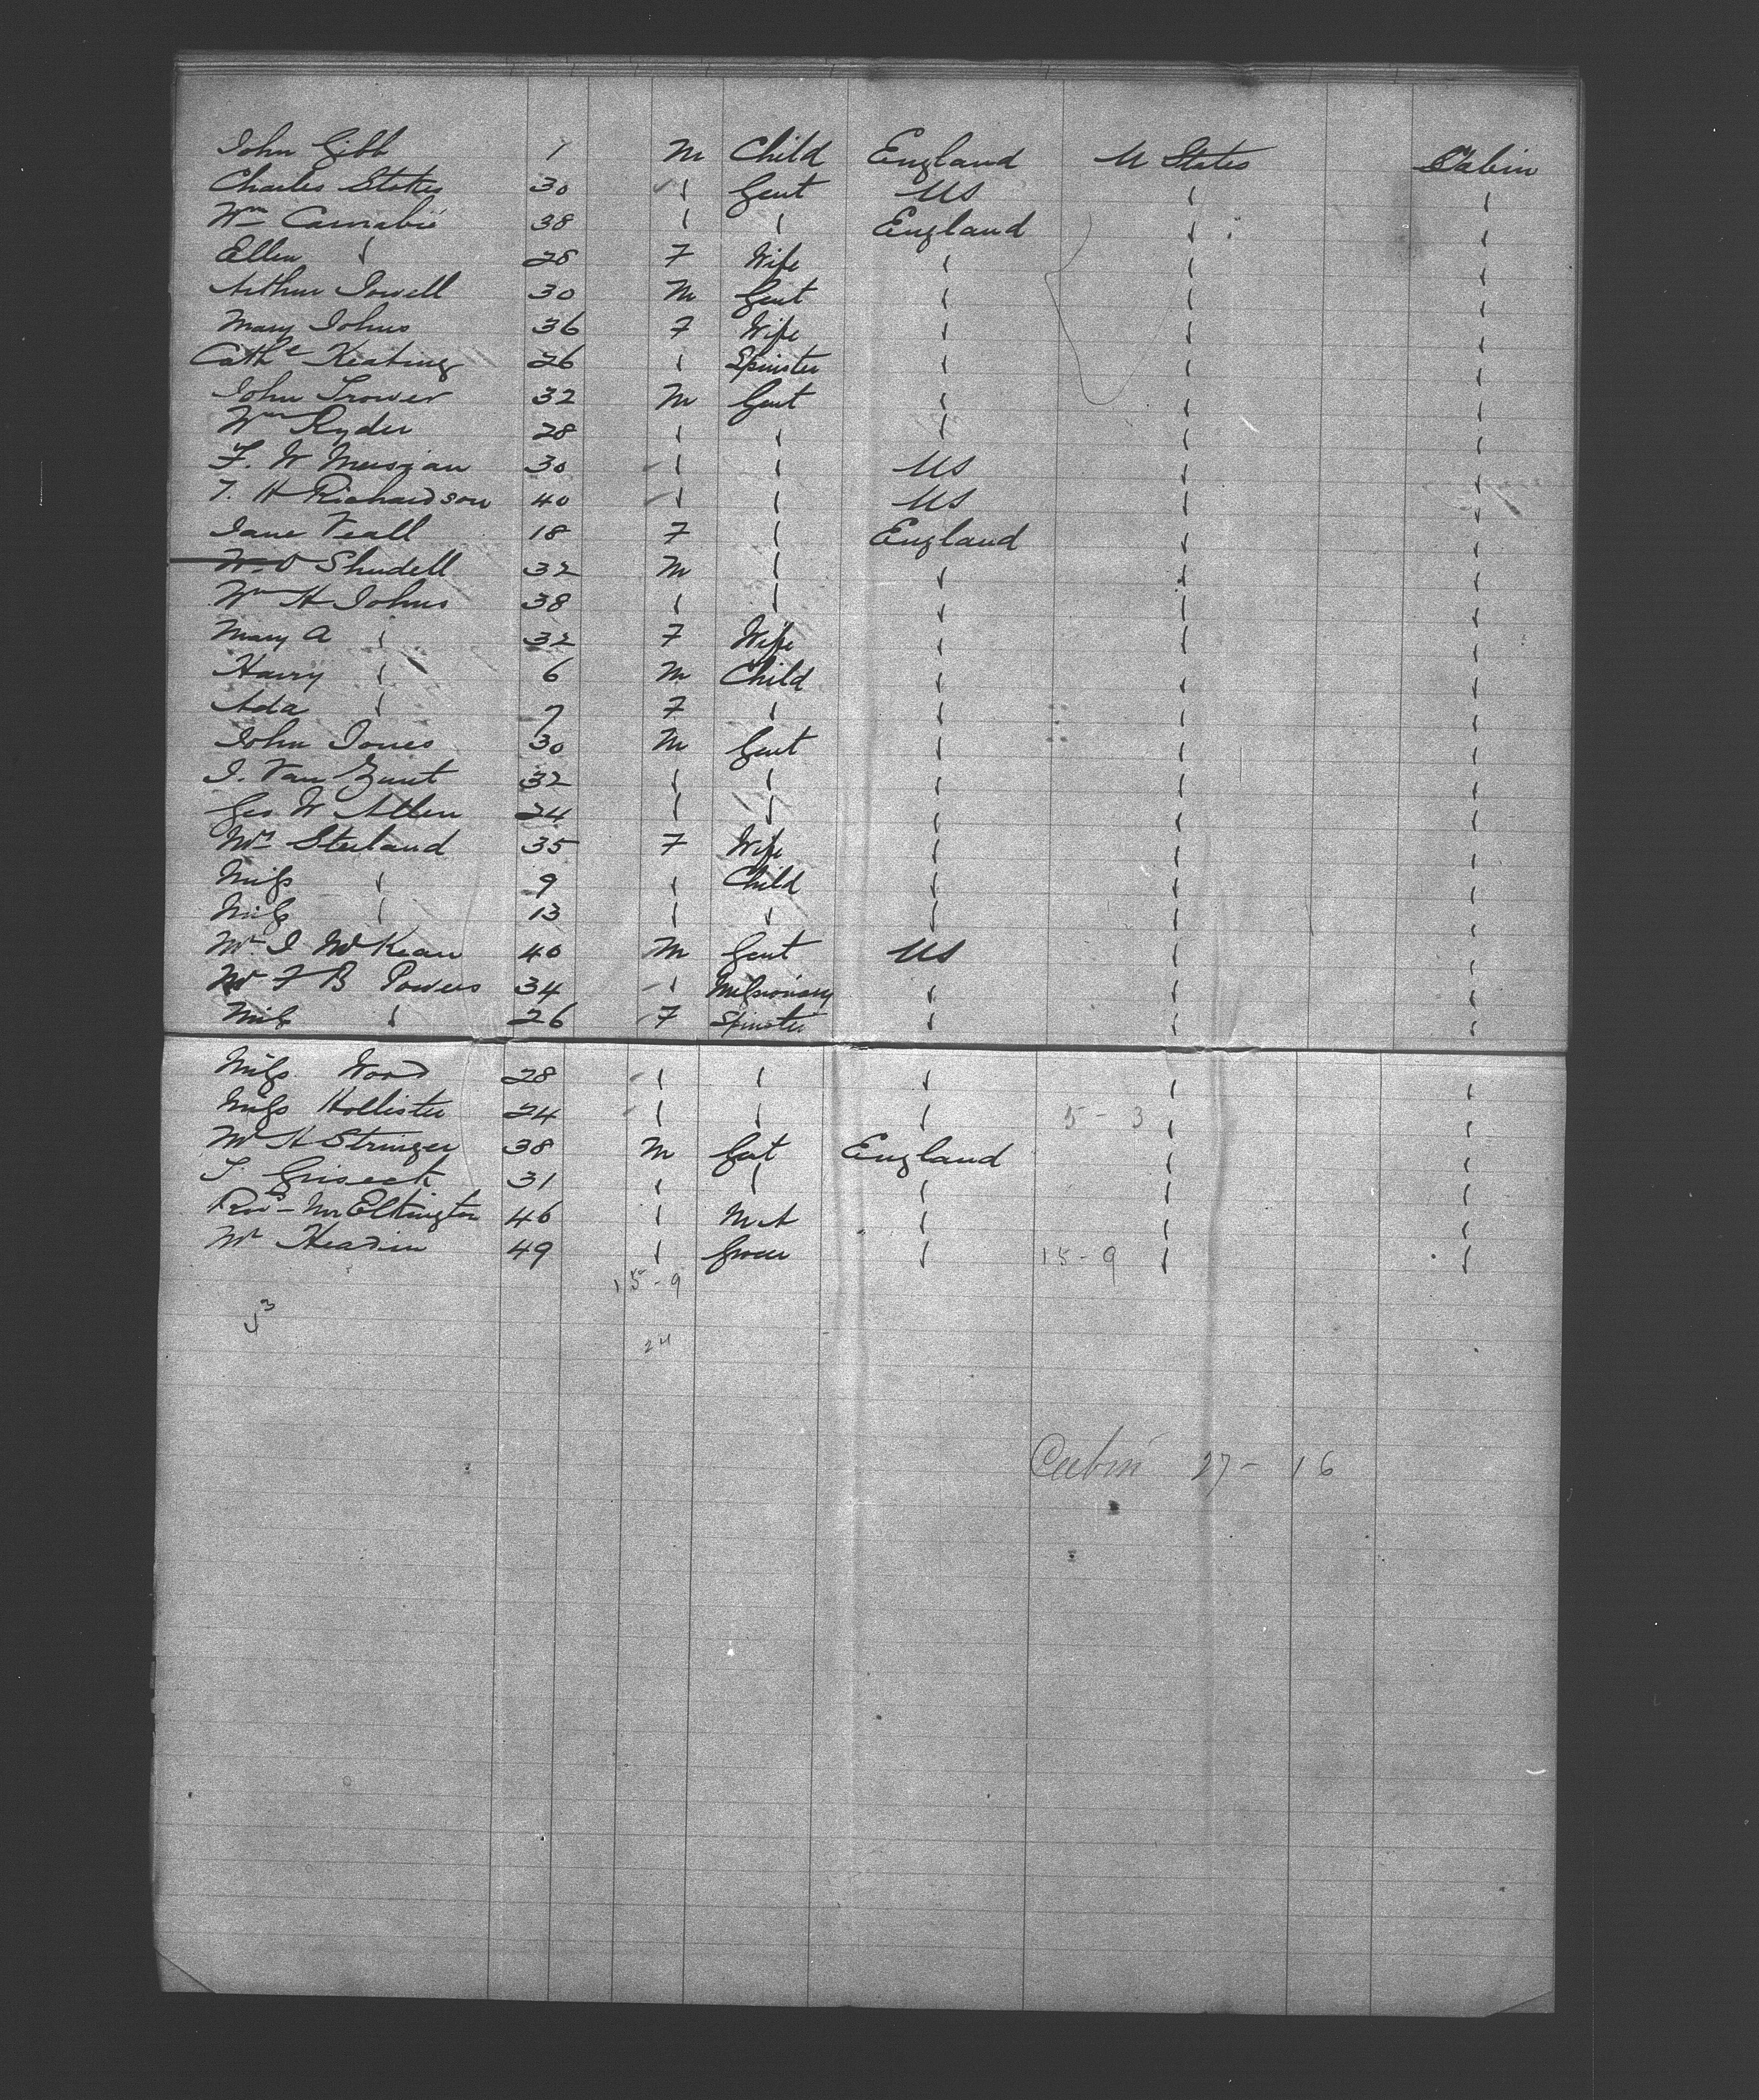 John Gibb 1 M Child England U States Cabin
Charles Stokes 30 " " Gent US " "
Wm Carnabie 38 " " England " "
Ellen " 28 F Wife " " "
Arthur Jowell 30 M Gent " " "
Mary Johns 36 F Wife " " "
Cathe Keating 26 " Spinster " " "
John Trower 32 M Gent " " "
Wm Ryder 28 " " " " "
F. W 30 " " US " "
T. H Richardson 40 " " US " "
Jane Veall 18 F " England " "
W. O Shudell 32 M " " " "
Wm H Johns 38 " " " " "
Mary A " 32 F Wife " " "
Harry " 6 M Child " " "
Ada " 7 F " " " "
John Jones 30 M Gent " " "
J. Van Zant 32 " " " " "
Geo W Allen 24 " " " " "
Mrs Sterland 35 F Wife " " "
Miss " 9 " Child " " "
Miss " 13 " " " " "
Mr J McKean 40 M Gent US " "
Mr F B Powers 34 " Missionary " " "
Miss " 26 F Spinster " " "
Miss Wood 28 " " " " "
Miss Hollister 24 " " " 5-3 " "
Mr H Stringer 38 M Gent England " "
31 " " " " "
Revd Mr Elkington 46 " MA " " "
Mr Headin 49 " Grocer " 15-9 " "
15-9
24
Cabin 27-16